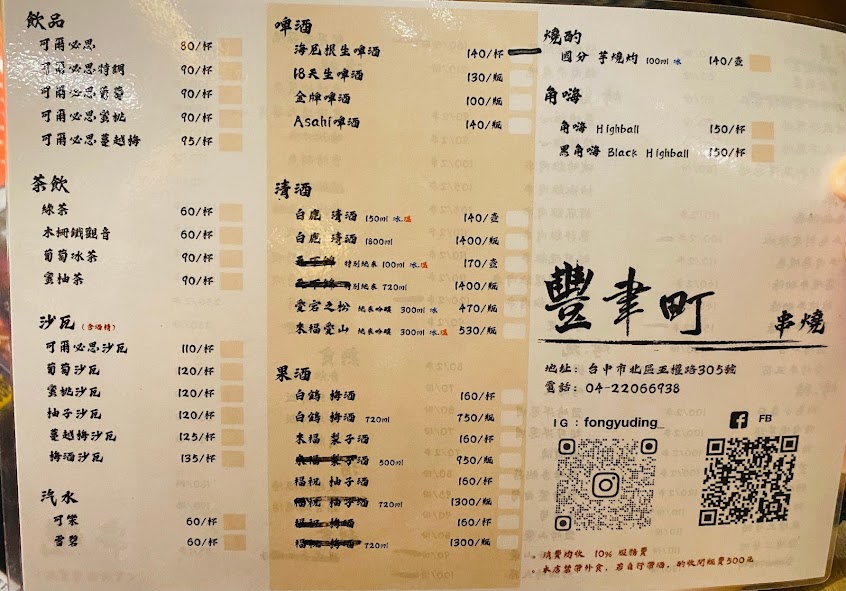 飲品
可爾必思 80/杯
可爾必思特調 90/杯
可爾必思葡萄 90/杯
可爾必思蜜桃 90/杯
可爾必思蔓越莓 95/杯
茶飲
綠茶 60/杯
木柵鐵觀音 60/杯
葡萄冰茶 90/杯
蜜柚茶 90/杯
沙瓦(含酒精)
可爾必思沙瓦 110/杯
葡萄沙瓦 120/杯
蜜桃沙瓦 120/杯
柚子沙瓦 120/杯
蔓越梅沙瓦 125/杯
梅酒沙瓦 135/杯
汽水
可樂 60/杯
雪碧 60/杯
啤酒
海尼根生啤酒 140/杯
18天生啤酒 130/瓶
金牌啤酒 100/瓶
Asahi啤酒 140/瓶
清酒
白鹿 清酒 150ml 冰.溫 140/壺
白鹿 清酒 1800ml 1400/瓶
特別純米 100ml 冰.溫 170/壺
特別純米 720ml 1400/瓶
愛宕之松 純米吟釀 300ml 冰 470/瓶
來福愛山 純米吟釀 300ml 冰.溫 530/瓶
果酒
白鶴 梅酒 160/杯
白鶴 梅酒 720ml 750/瓶
來福 梨子酒 160/杯
來福 梨子酒 500ml 950/瓶
福祝 柚子酒 160/杯
福祝 柚子酒 720ml 1300/瓶
福祝 梅酒 160/杯
福祝 梅酒 720ml 1300/瓶
燒酌
國分 芋燒灼 100ml 冰 140/壺
角嗨
角嗨 Highball 150/杯
黑角嗨 Black Highball 150/杯
豐聿町
串燒
地址: 台中市北區五權路305號
電話: 04-22066938
IG : fongyuding_
FB
。消費均收 10% 服務費
。本店禁帶外食，若自行帶酒，酌收開瓶費500元